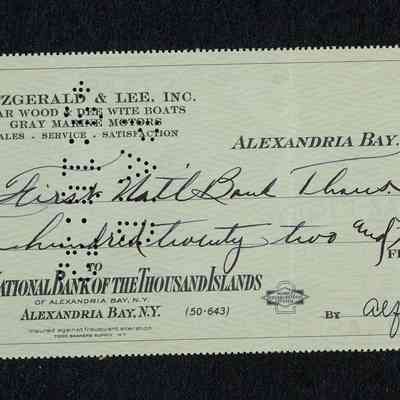 ZGERALD & LEE, INC.
AR WOOD & DEE WITE BOATS
GRAY MARINE MOTORS
ALES - SERVICE - SATISFACTION
ALEXANDRIA BAY,
First Nat'l Bank Thous.
hundred twenty two and
TO
NATIONAL BANK OF THE THOUSAND ISLANDS
OF ALEXANDRIA BAY, N.Y.
ALEXANDRIA BAY, N.Y. (50-643)
BY Alf
Insured against fraudulent alteration
TODD BANKERS SUPPLY N.Y.